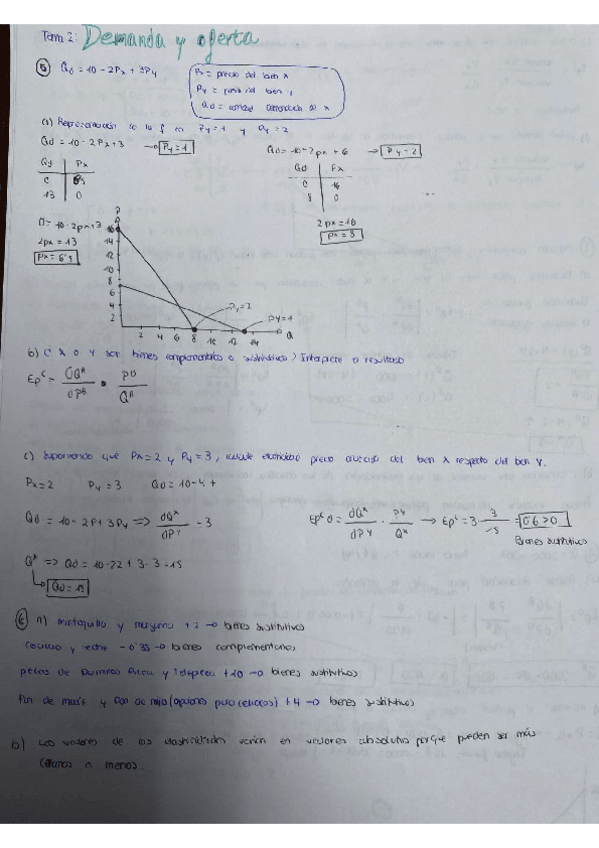 Tema 2: Demanda y oferta
5 Qd = 10 - 2Px + 3Py
Px = precio del bien x
Py = precio del bien y
Qd = cantidad demandada de x
a) Representación de la f en Py = 1 y Py = 2
Qd = 10 - 2Px + 3 → Py = 1
Qd = 10 - 2px + 6 → Py = 2
Qd Px
0 6'5
13 0
Qd Px
0 16
8 0
0 = 10 - 2px + 3
2px = 13
Px = 6'5
2px = 16
Px = 8
P
16
14
12
10
8
6
4
2
2 4 6 8 10 12 14 Q
Py = 2
Py = 1
b) ¿X o Y son bienes complementarios o sustitutivos? Interprete el resultado
Ep^c = ∂Q^A / ∂P^B · P^B / Q^A
c) Suponiendo que Px = 2 y Py = 3, calcule elasticidad precio cruzada del bien x respecto del bien Y.
Px = 2 Py = 3 Qd = 10 - 4 +
Qd = 10 - 2P + 3Py ⇒ ∂Q^x / ∂PY - 3
Ep^c d = ∂Q^x / ∂PY · PY / Q^x → Ep^c = 3 · 3 / 15 = 0'6 > 0
Bienes sustitutivos
Q^A ⇒ Qd = 10 - 2·2 + 3·3 - 15
Qd = 15
6 a) mantequilla y margarina + 2 → bienes sustitutivos
y leche - 0'35 → bienes complementarios
pizzas de Dominos Pizza y Telepizza + 10 → bienes sustitutivos
Pan de maíz y pan de mijo (opciones para celiacos) + 4 → bienes sustitutivos
b) Los valores de las elasticidades varían en valores absolutos porque pueden ser más
o menos.